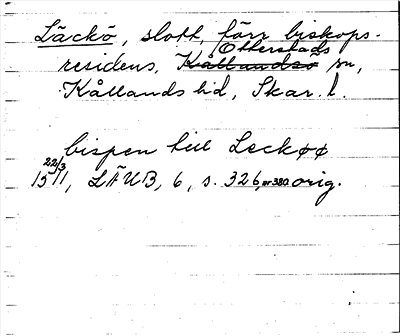 Läckö, slott, förr biskops-
residens, Otterstads sn,
Kållands hd, Skar. l.
bispen till Leckøø
22/3 1511, LÄUB, 6, s. 326, nr 380 orig.